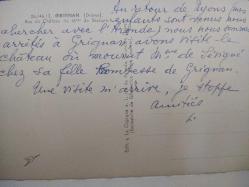 En retour de Lyons (mes
26.146.12 GRIGNAN (Drôme)
enfants sont venus nous
chercher avec l'Honda) nous nous sommes
arrêtés à Grignan, avons visité le
château où mourut Mme de Sévigné
chez sa fille Comtesse de Grignan.
Une visite m'arrive, je stoppe
amitiés